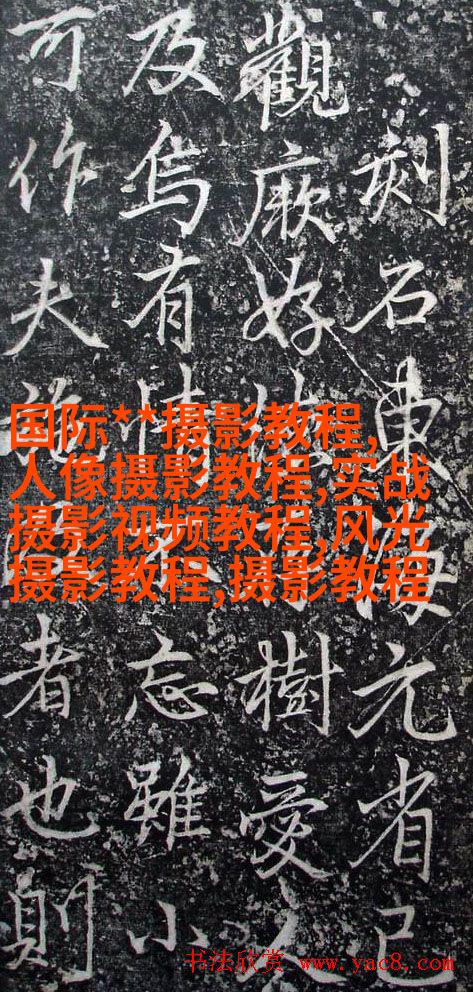 刻石東海元省已
觀厥好樹愛
及烏有情忘雖小
可作夫施者也則
国际**摄影教程,
人像摄影教程,实战
摄影视频教程,风光
摄影教程,摄影教程
书法欣赏 www.yac8.com